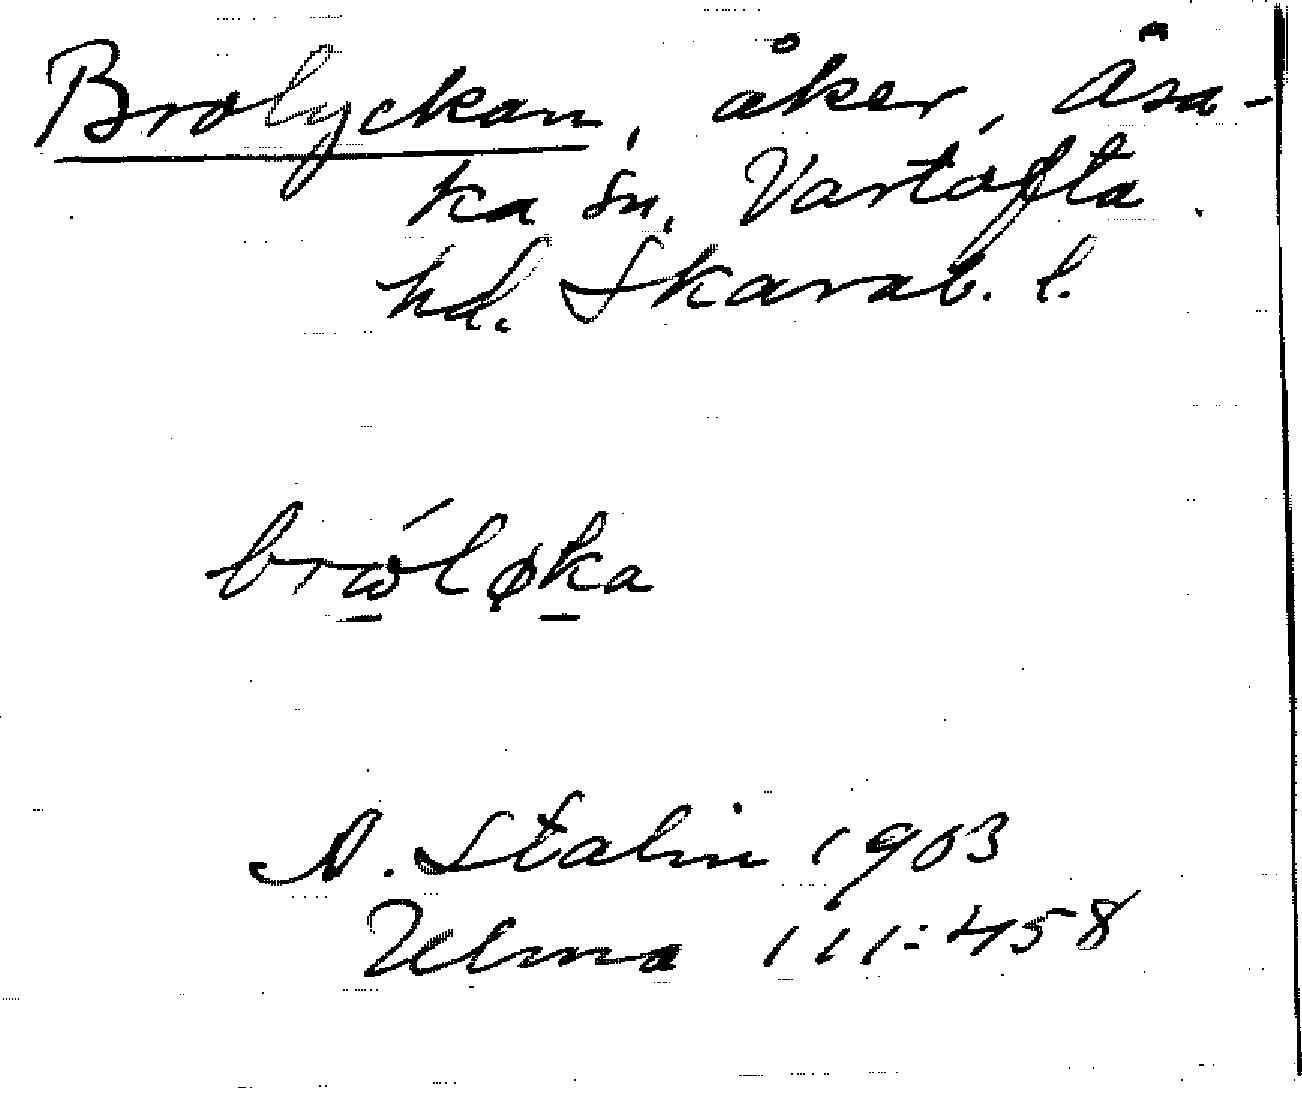 Brolyckan, åker, Åsa-
ka sn, Vartofta
hd. Skarab. l.
brώ̲løk̲a
A. Stalin 1903
Ulma 111:458